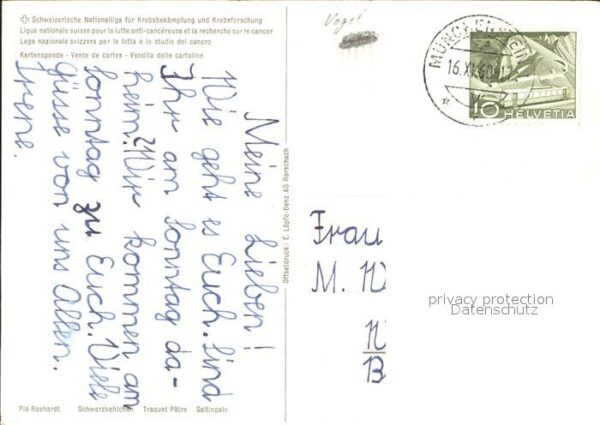 Schweizerische Nationalliga für Krebsbekämpfung und Krebsforschung
Ligue nationale suisse pour la lutte anti-cancéreuse et la recherche sur le cancer
Lega nazionale svizzera per la lotta e lo studio del cancro
Kartenspende - Vente de cartes - Vendita delle cartoline
Meine Lieben!
Wie geht es Euch. Sind
Ihr am Sonntag da-
heim? Wir kommen am
Sonntag zu Euch. Viele
Güsse von uns Allen.
Irene.
Pia Roshardt Schwarzkehlchen Traquet Pâtre Saltinpalo
Offsetdruck: E. Löpfe-Benz AG Rorschach
Vogel
MÜNCHENSTEIN
16.XI.60
10 HELVETIA
Frau
M. W
privacy protection
Datenschutz
B